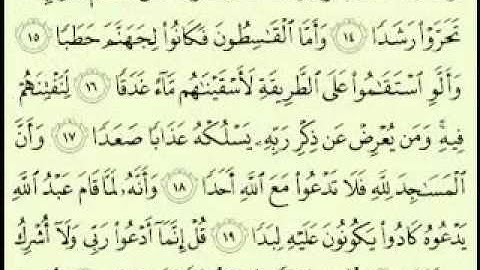 تَحَرَّوْا۟ رَشَدًا ١٤ وَأَمَّا ٱلْقَٰسِطُونَ فَكَانُوا۟ لِجَهَنَّمَ حَطَبًا ١٥
وَأَلَّوِ ٱسْتَقَٰمُوا۟ عَلَى ٱلطَّرِيقَةِ لَأَسْقَيْنَٰهُم مَّآءً غَدَقًا ١٦ لِّنَفْتِنَهُمْ
فِيهِ ۚ وَمَن يُعْرِضْ عَن ذِكْرِ رَبِّهِۦ يَسْلُكْهُ عَذَابًا صَعَدًا ١٧ وَأَنَّ
ٱلْمَسَٰجِدَ لِلَّهِ فَلَا تَدْعُوا۟ مَعَ ٱللَّهِ أَحَدًا ١٨ وَأَنَّهُۥ لَمَّا قَامَ عَبْدُ ٱللَّهِ
يَدْعُوهُ كَادُوا۟ يَكُونُونَ عَلَيْهِ لِبَدًا ١٩ قُلْ إِنَّمَآ أَدْعُوا۟ رَبِّى وَلَآ أُشْرِكُ